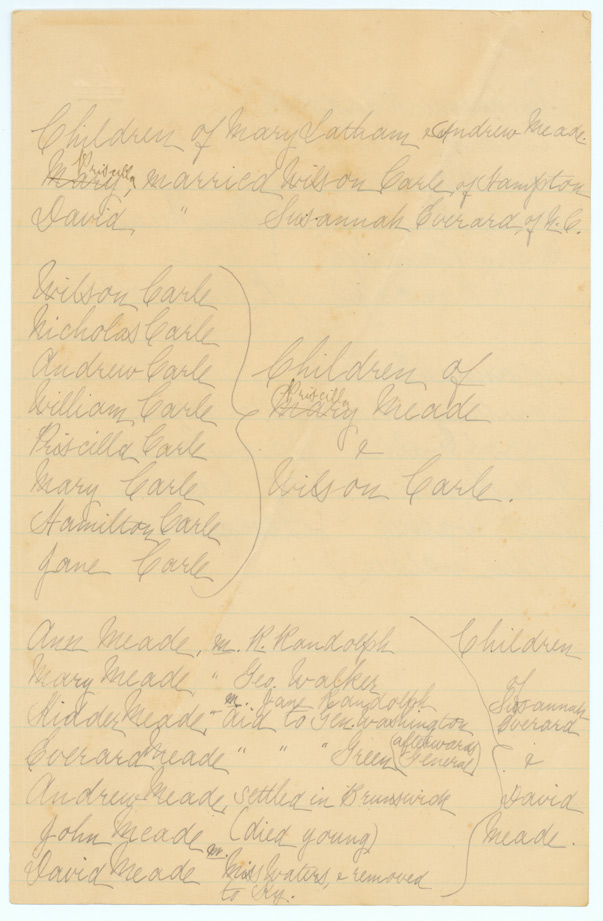 Children of Mary Latham & Andrew Meade.
Priscilla
Mary, married Wilson Carle of Hampton
David, " Susannah Everard, of N.C.
Wilson Carle
Nicholas Carle
Andrew Carle
William Carle
Priscilla Carle
Mary Carle
Hamilton Carle
Jane Carle
Children of
Priscilla
Mary Meade
&
Wilson Carle.
Ann Meade, m. R. Randolph
Mary Meade " Geo. Walker
m. Jane Randolph
Kidder Meade, " aid to Gen. Washington
Everard Meade " " " Green (afterwards General)
Andrew Meade, settled in Brunswick
John Meade (died young)
David Meade m. Miss Waters, & removed
to Ky.
Children
of
Susannah
Everard
&
David
Meade.